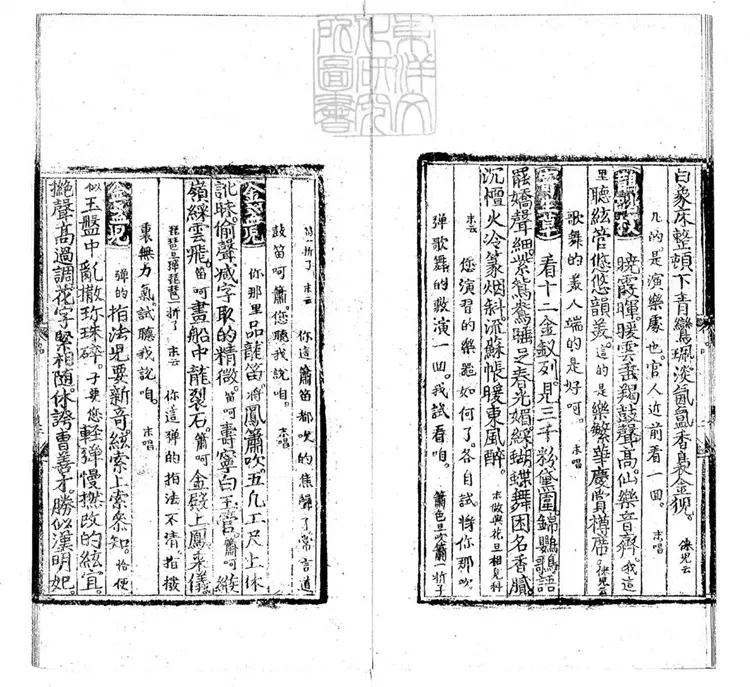 東洋文化研究所圖書
白象床整頓下青鸞珮淡氤氳香裊金猊。俫兒云
兀的是演樂處也。官人近前看一回。末唱
曉霞暉。暖雲垂羯鼓聲高。仙樂音齊。我這
里聽絃管悠悠韻美。這的是樂繁華慶賞樽席。俫兒云
歌舞的美人端的是好呵。末唱
看十二金釵列。見三千粉黛圍。錦鸚鵡歌語
罷嬌聲細。紫鴛鴦睡足春光媚。綵蝴蝶舞困名香膩。
沉檀火冷篆烟斜。流蘇帳暖東風醉。末做與花旦相見科
末云 您演習的樂器如何了。各自試將你那吹
彈歌舞的敷演一回。我試看咱。簫色旦吹簫一折子
一折了 末云 你這簫笛都吹的焦聲了常言道
鼓笛呵簫您聽我說咱。末唱
金盞兒 你那里品龍笛。將鳳簫吹。五凡工尺上休
訛。偷聲减字取的精微。笛呵壽寧白玉宮。簫呵緱
嶺綵雲飛。笛呵畫船中龍裂石。簫呵金殿上鳳來儀。
琵琶旦彈琵琶一折了 末云 你這彈的指法不清指撥
裏無力氣。試聽我說咱。末唱
金盞兒 彈的指法兒要新奇。絃索上索條知。恰便
似玉盤中亂撒珍珠碎。子要您輕彈慢撚改的絃宜。
摠聲高過調。花字緊相隨。休誇曹善才。勝似漢明妃。